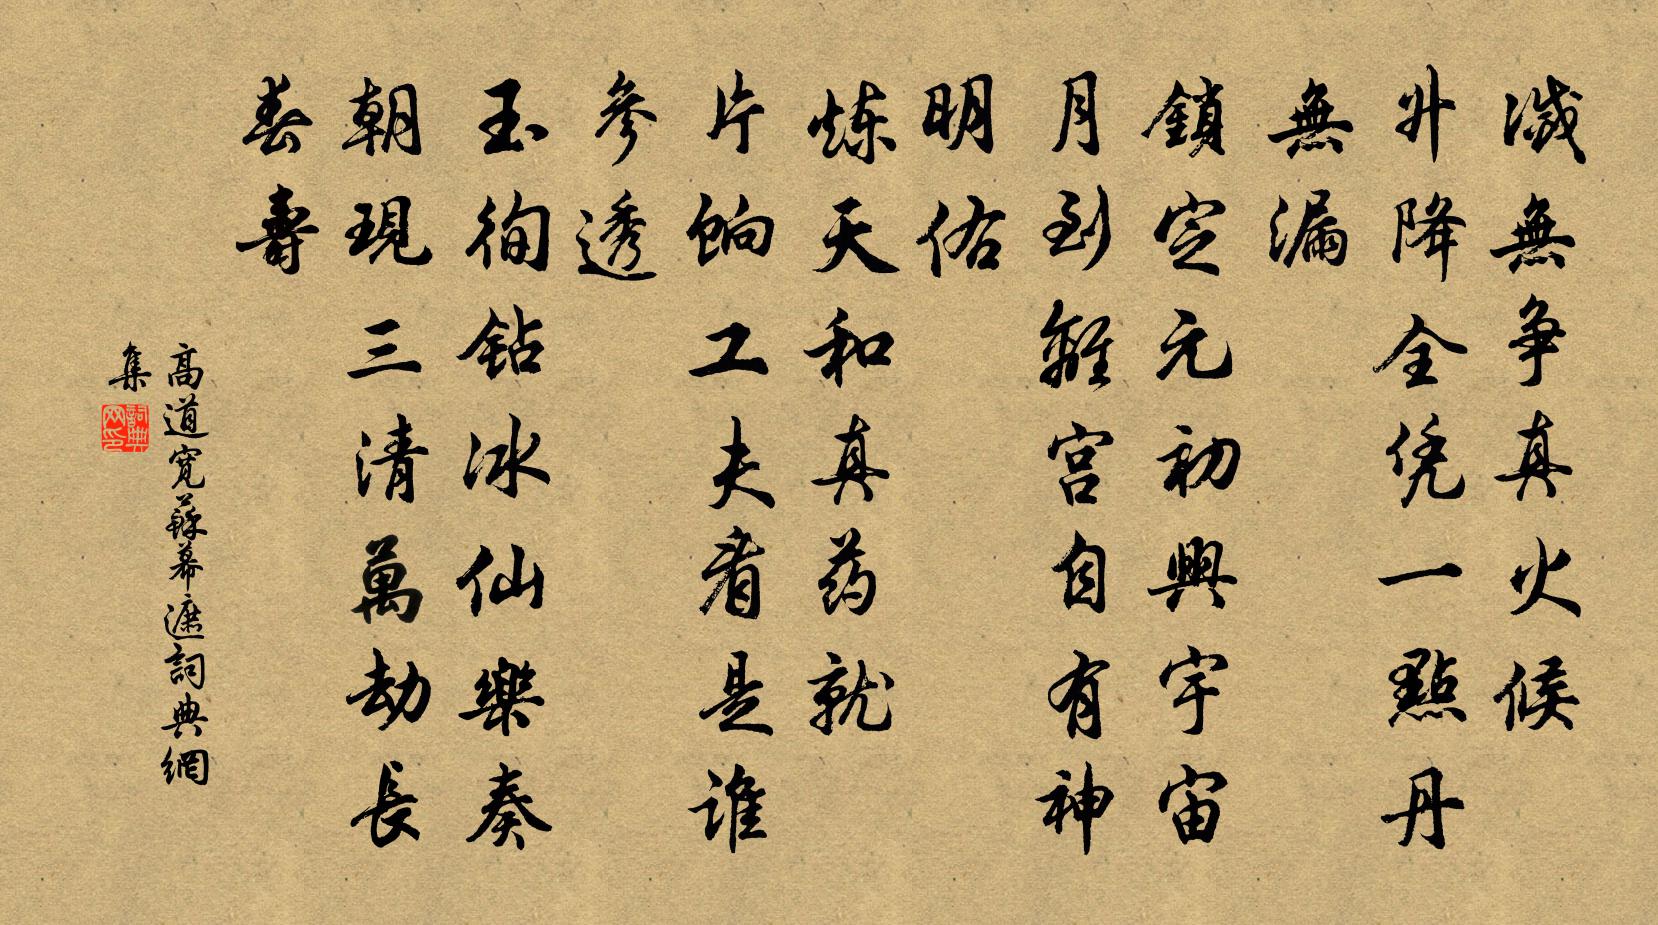 滅無爭真火候
升降全凭一點丹
無漏
鎖定元初興宇宙
月到離宮自有神
明佑
炼天和真药就
片餉工夫看是谁
參透
玉徇鈷冰仙樂奏
朝現三清萬劫長
春壽
高道寬蘇幕遮詞典網
集
詞典网印